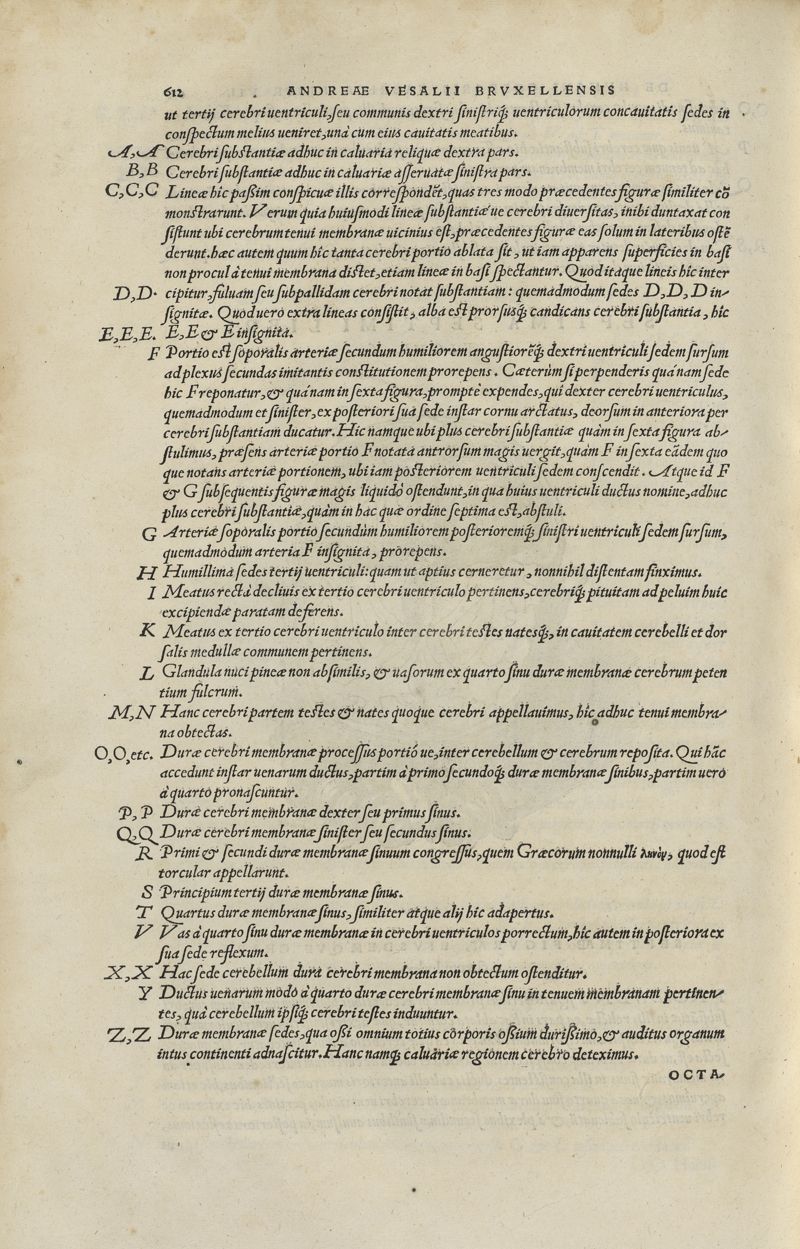 612 ANDREAE VESALII BRVXELLENSIS
ut tertij cerebri uentriculi, ſeu communis dextri ſiniſtriq́ꝫ uentriculorum concauitatis ſedes in
conſpectum melius ueniret, unà cum eius cauitatis meatibus.
A, A Cerebri ſubſtantiæ adhuc in caluaria reliquæ dextra pars.
B, B Cerebri ſubſtantiæ adhuc in caluariæ aſſeruatæ ſiniſtra pars.
C, C, C Lineæ hic paßim conſpicuæ illis correſpondẽt, quas tres modo præcedentes figuræ ſimiliter cõ
monſtrarunt. Verum quia huiuſmodi lineæ ſubſtantiæ ue cerebri diuerſitas, inibi duntaxat con
ſiſtunt ubi cerebrum tenui membranæ uicinius eſt, præcedentes figuræ eas ſolum in lateribus oſtẽ
derunt. hæc autem quum hic tanta cerebri portio ablata ſit, ut iam apparens ſuperficies in baſi
non procul à tenui membrana diſtet, etiam lineæ in baſi ſpectantur. Quod itaque lineis hic inter
D, D. cipitur, fuluam ſeu ſubpallidam cerebri notat ſubſtantiam: quemadmodum ſedes D, D, D in-
ſignitæ. Quod uero extra lineas conſiſtit, alba eſt prorſusq́ꝫ candicans cerebri ſubſtantia, hic
E, E, E. E, E & E inſignita.
F Portio eſt ſoporalis arteriæ ſecundum humiliorem anguſtiorẽq́ꝫ dextri uentriculi ſedem ſurſum
ad plexus ſecundas imitantis conſtitutionem prorepens. Cæterùm ſi perpenderis quánam ſede
hic F reponatur, & quánam in ſexta figura, promptè expendes, qui dexter cerebri uentriculus,
quemadmodum et ſiniſter, ex poſteriori ſua ſede inſtar cornu arctatus, deorſum in anteriora per
cerebri ſubſtantiam ducatur. Hic namque ubi plus cerebri ſubſtantiæ quàm in ſexta figura ab-
ſtulimus, præſens arteriæ portio F notata antrorſum magis uergit, quàm F in ſexta eãdem quo
que notans arteriæ portionem, ubi iam poſteriorem uentriculi ſedem conſcendit. Atque id F
& G ſubſequentis figuræ magis liquidò oſtendunt, in qua huius uentriculi ductus nomine, adhuc
plus cerebri ſubſtantiæ, quàm in hac quæ ordine ſeptima eſt, abſtuli.
G Arteriæ ſoporalis portio ſecundùm humiliorem poſterioremq́ꝫ ſiniſtri uentriculi ſedem ſurſum,
quemadmodum arteria F inſignita, prorepens.
H Humillima ſedes tertij uentriculi: quam ut aptius cerneretur, nonnihil diſtentam finximus.
I Meatus rectà decliuis ex tertio cerebri uentriculo pertinens, cerebriq́ꝫ pituitam ad peluim huic
excipiendæ paratam deferens.
K Meatus ex tertio cerebri uentriculo inter cerebri teſtes natesq́ꝫ, in cauitatem cerebelli et dor
ſalis medullæ communem pertinens.
L Glandula nuci pineæ non abſimilis, & uaſorum ex quarto ſinu duræ membranæ cerebrum peten
tium fulcrum.
M, N Hanc cerebri partem teſtes & nates quoque cerebri appellauimus, hic adhuc tenui membra-
na obtectas.
O, O, etc. Duræ cerebri membranæ proceſſus portió ue, inter cerebellum & cerebrum repoſita. Qui hãc
accedunt inſtar uenarum ductus, partim à primo ſecundoq́ꝫ duræ membranæ ſinibus, partim uerò
à quarto pronaſcuntur.
P, P Duræ cerebri membranæ dexter ſeu primus ſinus.
Q, Q Duræ cerebri membranæ ſiniſter ſeu ſecundus ſinus.
R Primi & ſecundi duræ membranæ ſinuum congreſſus, quem Græcorum nonnulli ληνὸν, quod eſt
torcular appellarunt.
S Principium tertij duræ membranæ ſinus.
T Quartus duræ membranæ ſinus, ſimiliter atque alij hic adapertus.
V Vas à quarto ſinu duræ membranæ in cerebri uentriculos porrectum, hic autem in poſteriora ex
ſua ſede reflexum.
X, X Hac ſede cerebellum dura cerebri membrana non obtectum oſtenditur.
Y Ductus uenarum modò à quarto duræ cerebri membranæ ſinu in tenuem membranam pertinen-
tes, quà cerebellum ipſiq́ꝫ cerebri teſtes induuntur.
Z, Z Duræ membranæ ſedes, qua oſsi omnium totius corporis oſsium durißimo, & auditus organum
intus continenti adnaſcitur. Hanc namq́ꝫ caluariæ regionem cerebro deteximus.
OCTA-